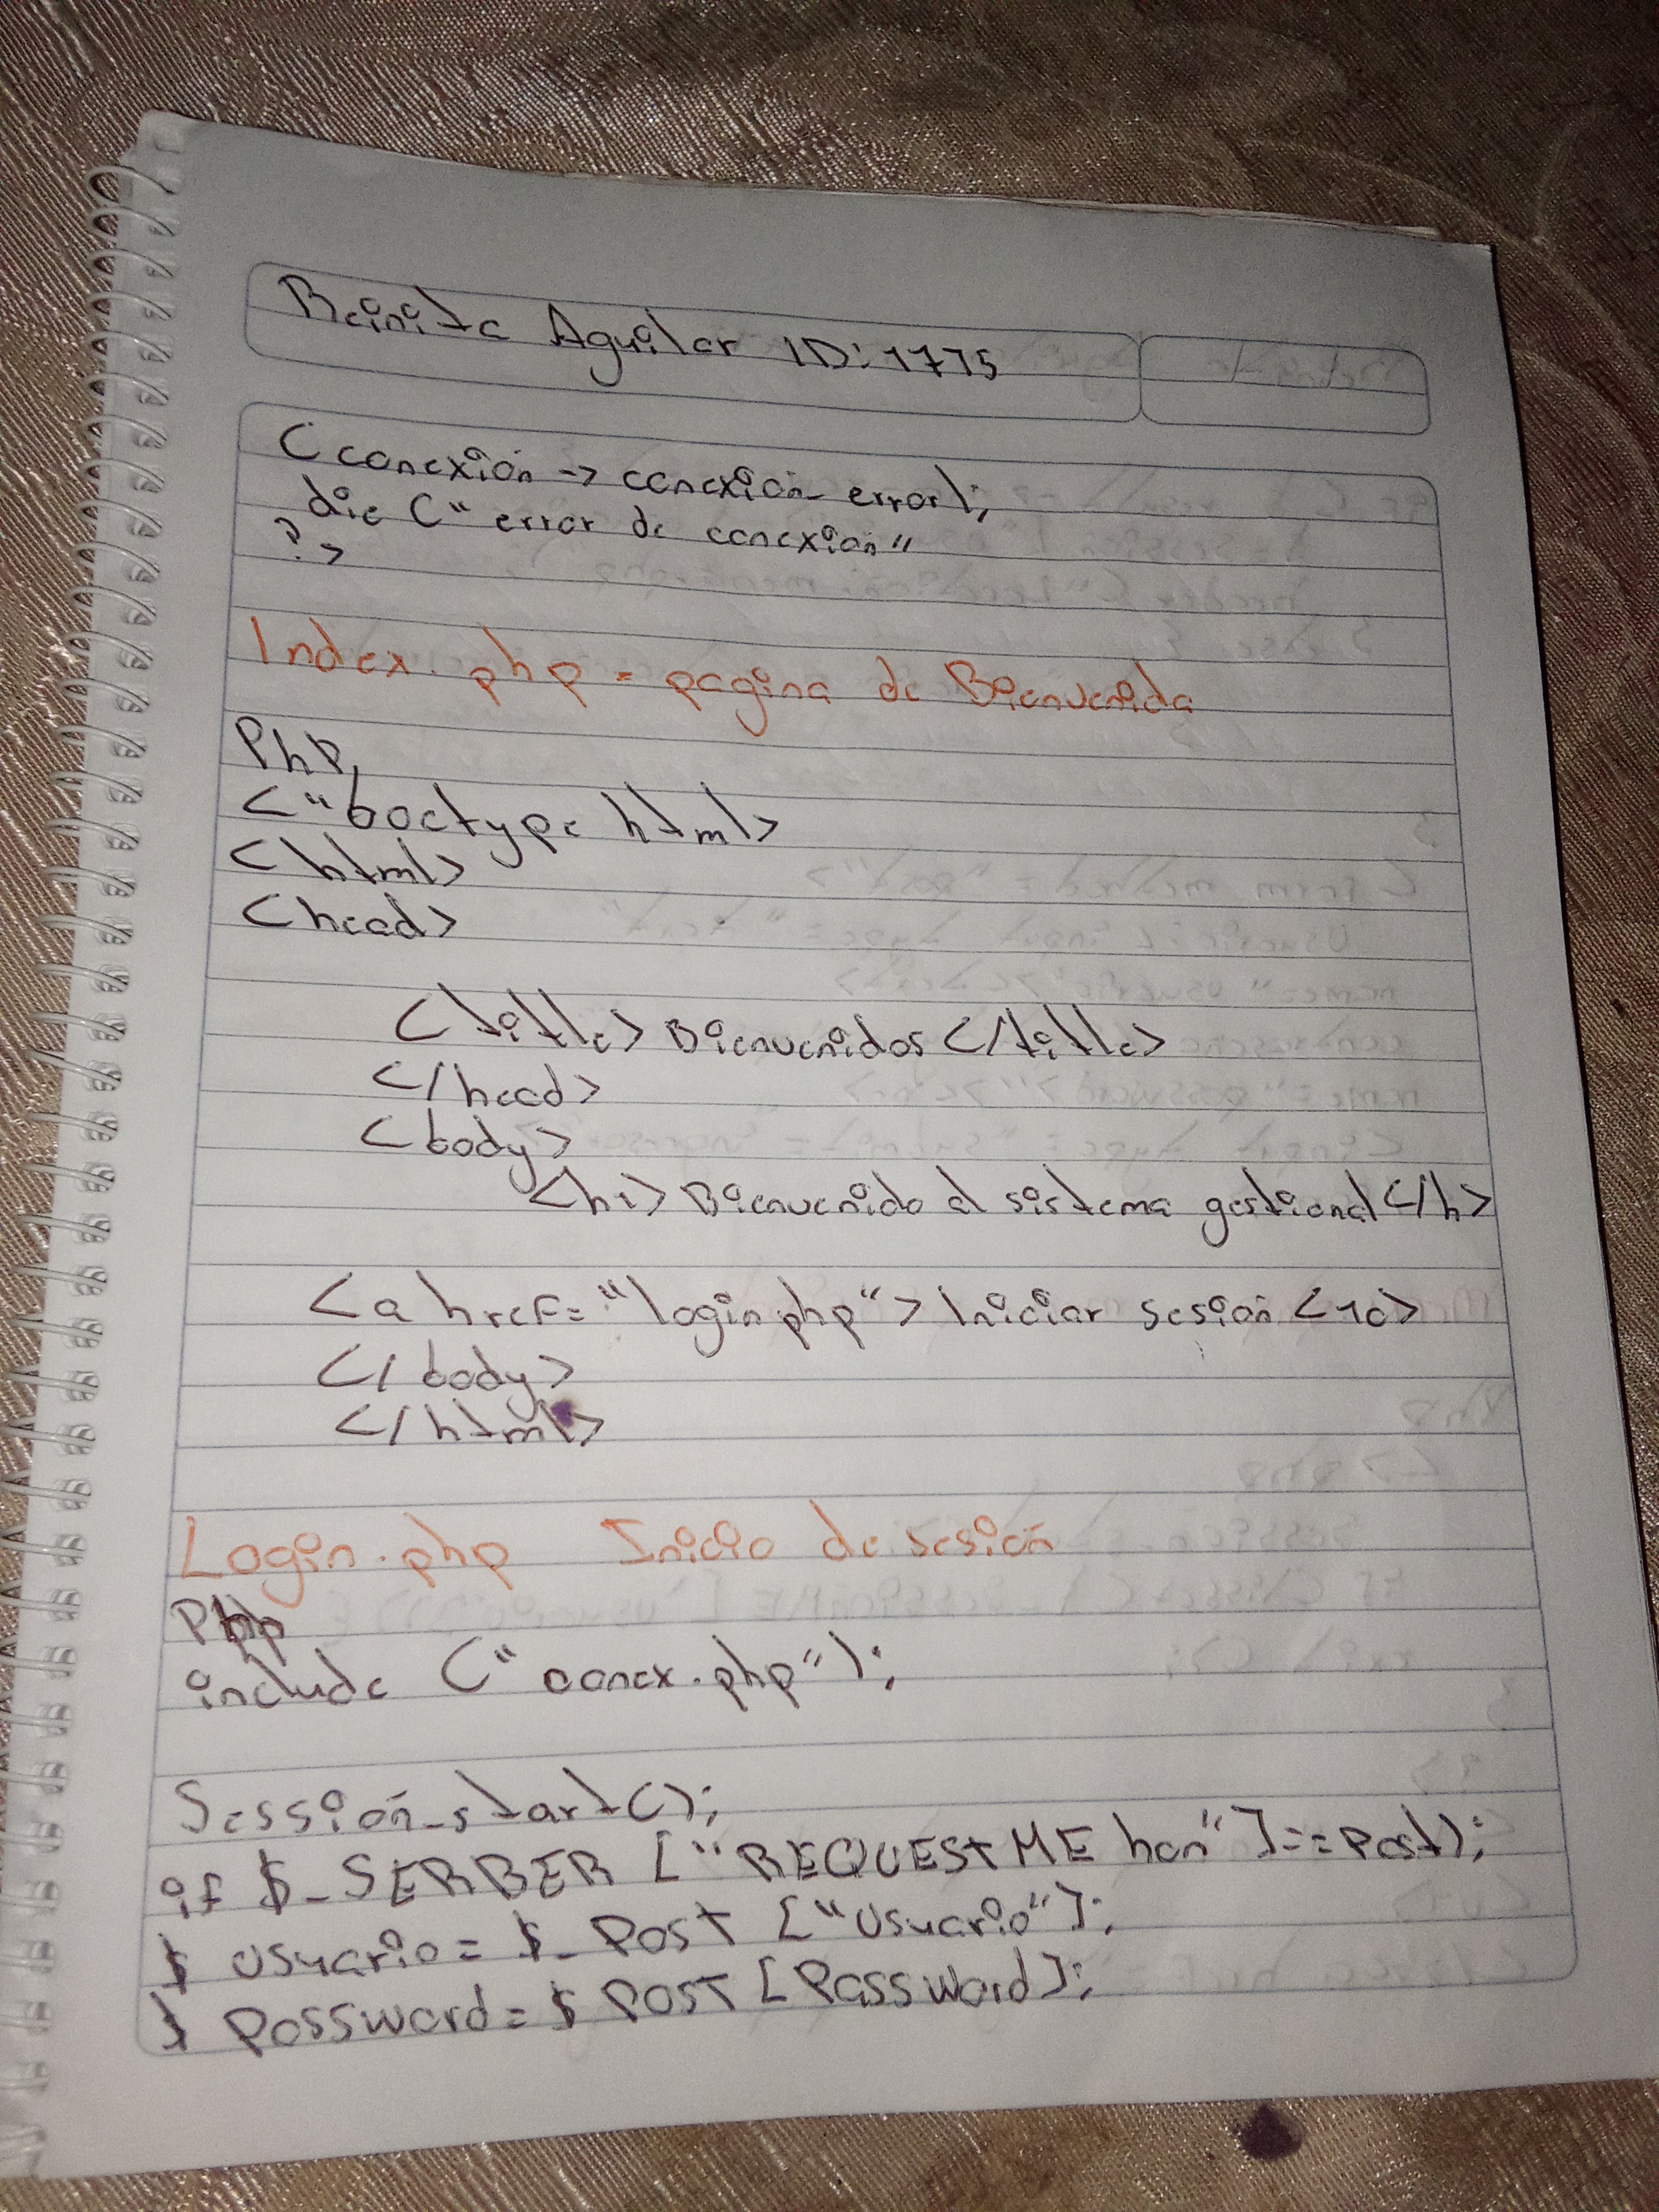 Reinita Aguilar ID: 1775
(conexión -> conexión_error);
die (" error de conexión"
?>
Index.php = pagina de Bienvenida
Php
<"doctype html>
<html>
<head>
<title> Bienvenidos </title>
</head>
<body>
<h1> Bienvenido al sistema gestional </h>
<a href="login php"> Iniciar sesión </a>
</body>
</html>
Login.php Inicio de sesión
Php
include ("conex.php");
Sessión_start();
if $_SERBER ["REQUEST ME hon"]==Post);
$ usuario = $_Post ["Usuario"];
$ Possword = $ POST [Password];